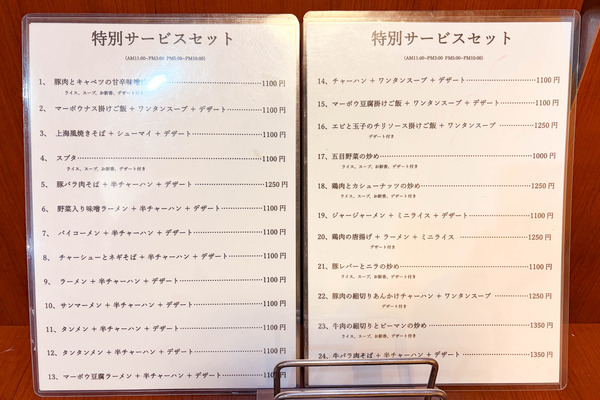 特別サービスセット
(AM11:00~PM3:00 PM5:00~PM10:00)
1、 豚肉とキャベツの甘辛味噌 1100円
ライス、スープ、お新香、デザート付き
2、 マーボウナス掛けご飯 + ワンタンスープ + デザート 1100円
3、 上海風焼きそば + シューマイ + デザート 1100円
4、 スブタ 1100円
ライス、スープ、お新香、デザート付き
5、 豚バラ肉そば + 半チャーハン + デザート 1250円
6、 野菜入り味噌ラーメン + 半チャーハン + デザート 1100円
7、 パイコーメン + 半チャーハン + デザート 1100円
8、 チャーシューとネギそば + 半チャーハン + デザート 1100円
9、 ラーメン + 半チャーハン + デザート 1100円
10、 サンマーメン + 半チャーハン + デザート 1100円
11、 タンメン + 半チャーハン + デザート 1100円
12、 タンタンメン + 半チャーハン + デザート 1100円
13、 マーボウ豆腐ラーメン + 半チャーハン + デザート 1100円
特別サービスセット
(AM11:00~PM3:00 PM5:00~PM10:00)
14、 チャーハン + ワンタンスープ + デザート 1100円
15、 マーボウ豆腐掛けご飯 + ワンタンスープ + デザート 1100円
16、 エビと玉子のチリソース掛けご飯 + ワンタンスープ 1250円
デザート付き
17、 五目野菜の炒め 1000円
ライス、スープ、お新香、デザート付き
18、 鶏肉とカシューナッツの炒め 1250円
ライス、スープ、お新香、デザート付き
19、 ジャージャーメン + ミニライス + デザート 1100円
20、 鶏肉の唐揚げ + ラーメン + ミニライス 1250円
デザート付き
21、 豚レバーとニラの炒め 1100円
ライス、スープ、お新香、デザート付き
22、 豚肉の細切りあんかけチャーハン + ワンタンスープ 1250円
デザート付き
23、 牛肉の細切りとピーマンの炒め 1350円
ライス、スープ、お新香、デザート付き
24、 牛バラ肉そば + 半チャーハン + デザート 1350円